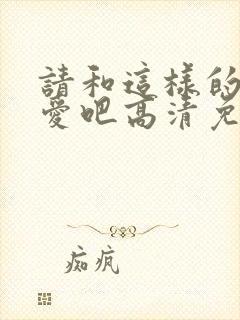 請和這樣的
愛吧高清免
痴疯